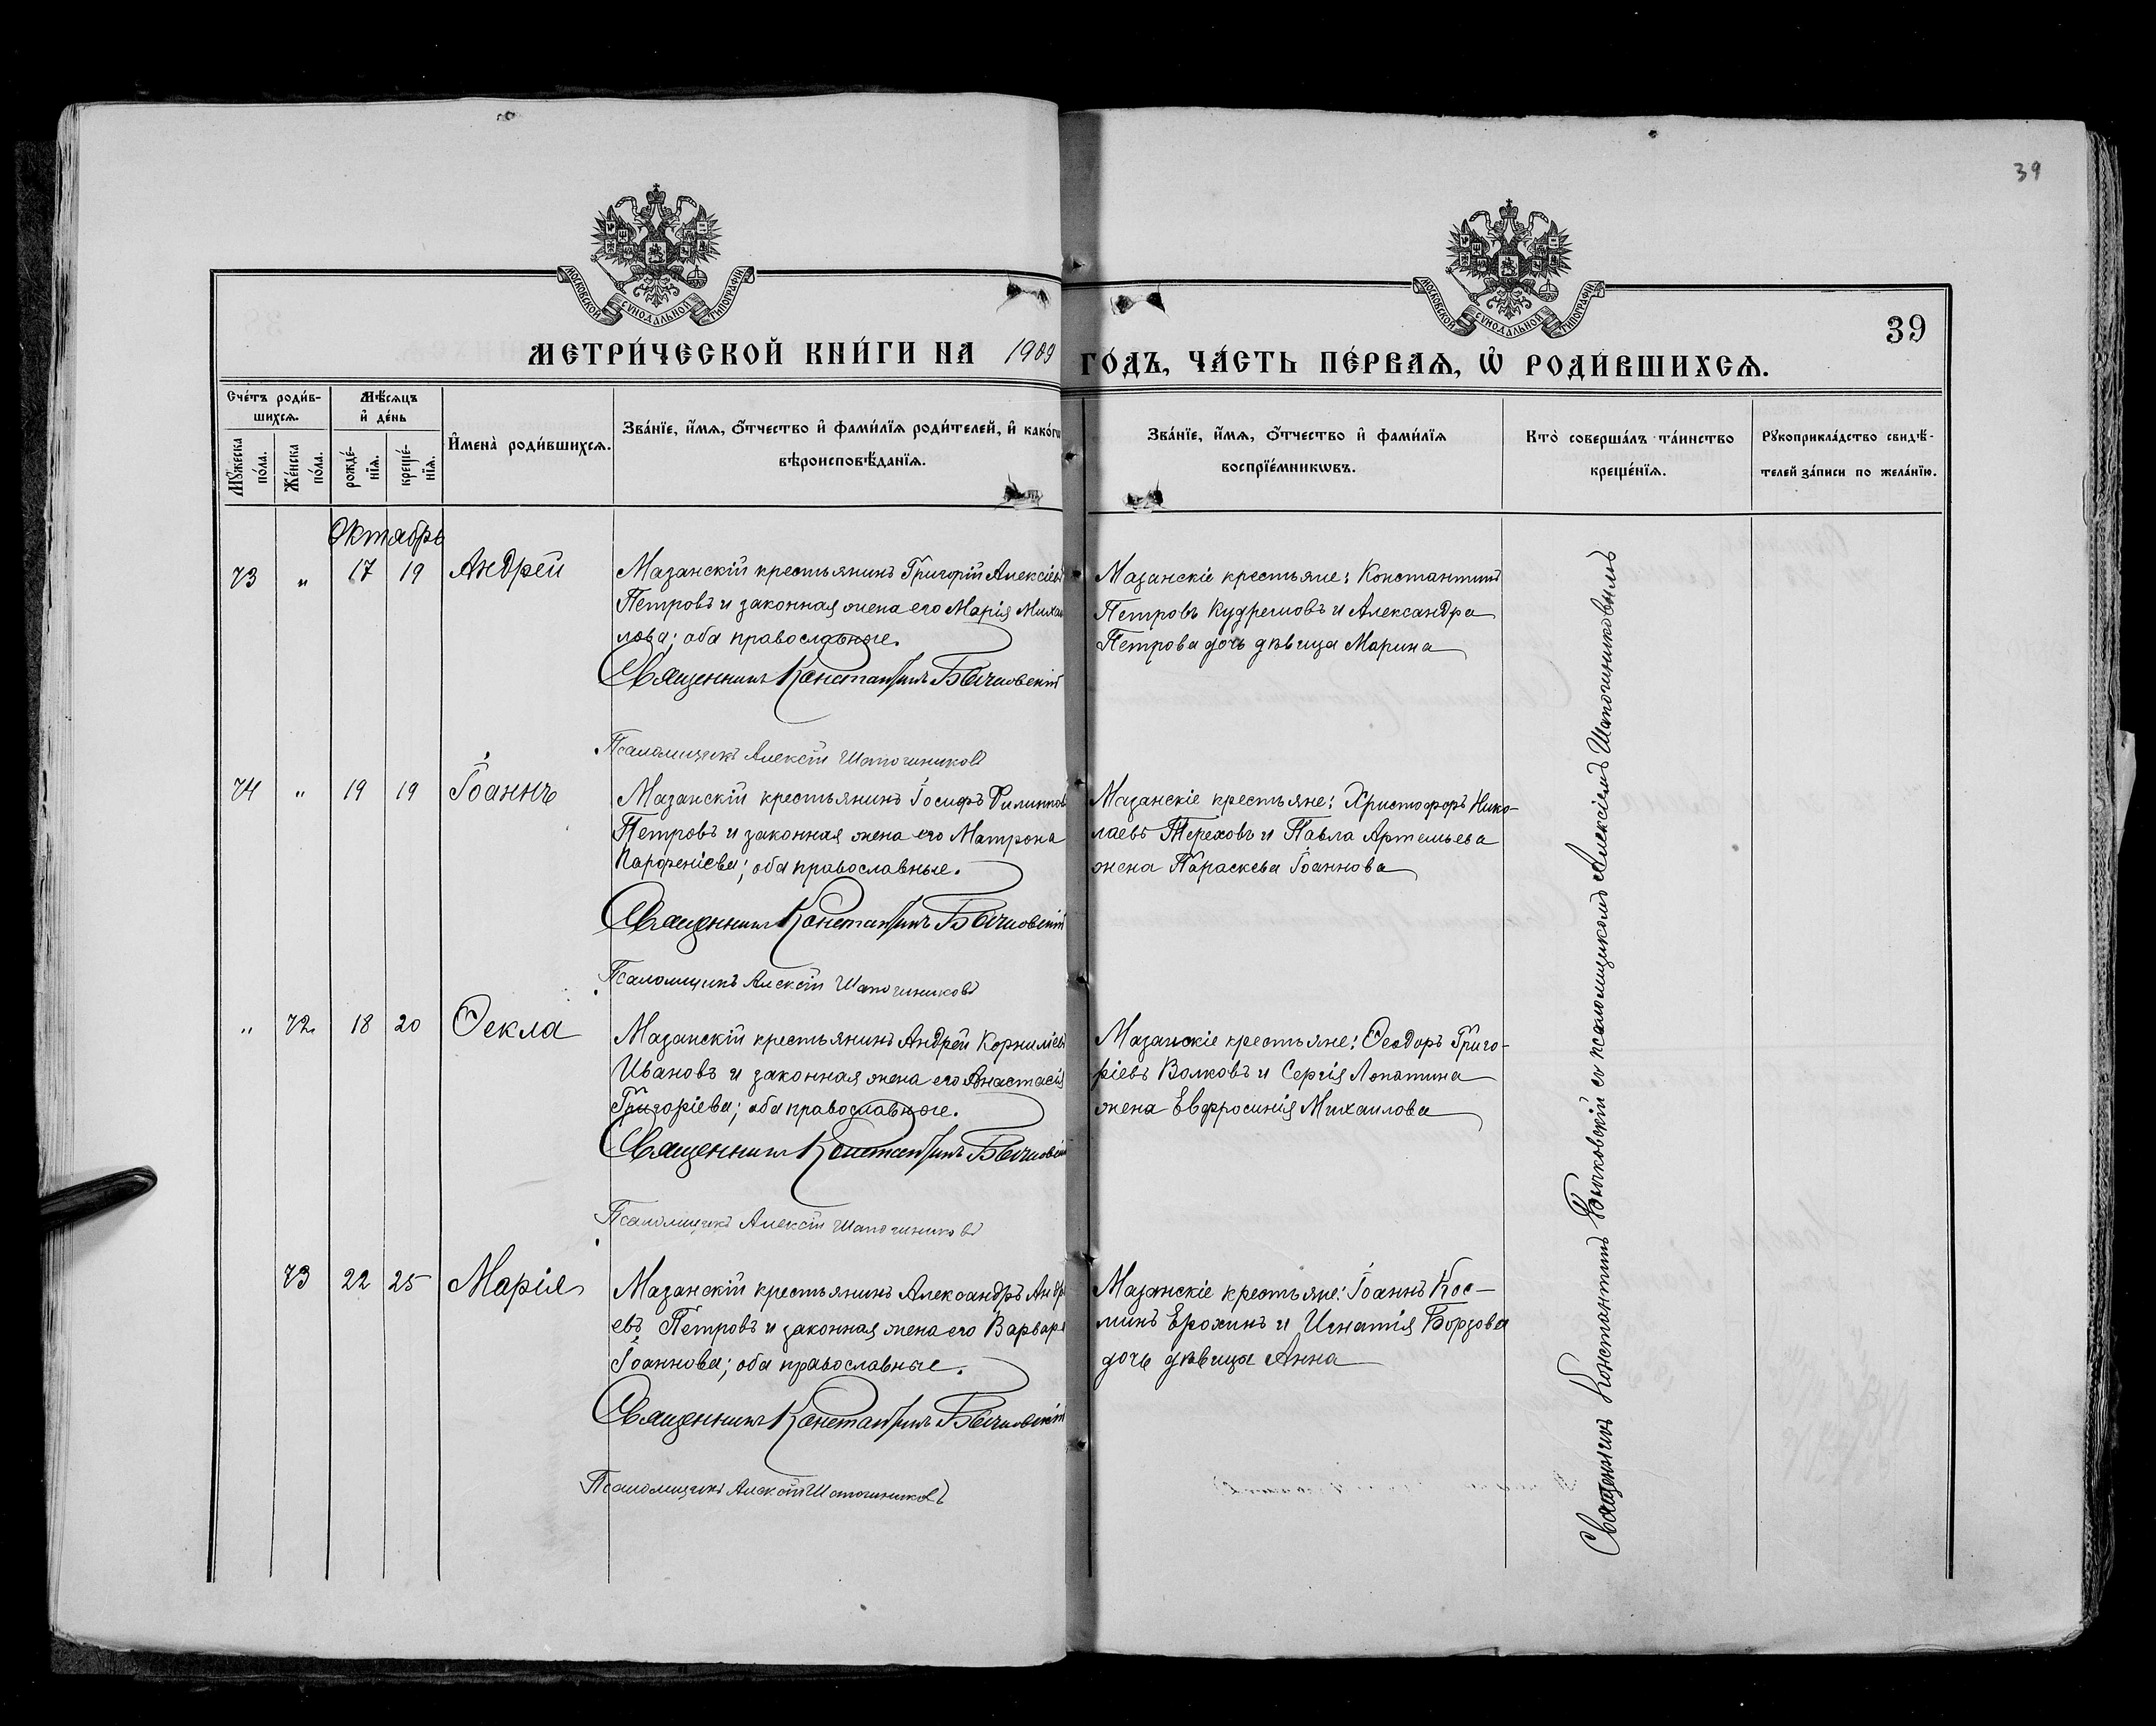 39
МОСКОВСКОЙ СУНОДАЛЬНОЙ ТИПОГРАФІИ
МОСКОВСКОЙ СУНОДАЛЬНОЙ ТИПОГРАФІИ
39
МЕТРИ́ЧЕСКОЙ КНИ́ГИ НА 1909 ГО́ДЪ, ЧА́СТЬ ПЕ́РВАѦ, Ѡ҆ РОДИ́ВШИХСѦ.
Сче́тъ роди́в-
шихсѧ.
Мꙋ́жеска
по́ла.
Же́нска
по́ла.
Мѣ́сѧцъ
и҆ де́нь
рожде́-
нїѧ.
креще́-
нїѧ.
И҆мена̀ роди́вшихсѧ.
Зва́нїе, и҆́мѧ, ѻ҆́тчество и҆ фами́лїѧ роди́телей, и҆ како́гѡ
вѣроисповѣ́данїѧ.
Зва́нїе, и҆́мѧ, ѻ҆́тчество и҆ фами́лїѧ
воспрїе́мникѡвъ.
Кто̀ соверша́лъ та́инство
креще́нїѧ.
Рꙋкоприкла́дство свидѣ́-
телей за́писи по жела́нїю.
Октябрь
73 " 17 19 Андрей
Мазанскій крестьянинъ Григорій Алексіевъ
Петровъ и законная жена его Марія Михаи
лова; оба православные.
Священникъ Константинъ Бычковскій
Псаломщикъ Алексій Шапошниковъ
Мазанскіе крестьяне: Константинъ
Петровъ и Александра
Петрова дочь дѣвица Марина
74 " 19 19 Іоаннъ
Мазанскій крестьянинъ Іосифъ Филиппов
Петровъ и законная жена его Матрона
Парфеніева; оба православные.
Священникъ Константинъ Бычковскій
Псаломщикъ Алексій Шапошниковъ
Мазанскіе крестьяне: Христофоръ Нико-
лаевъ Тереховъ и Павла Артемьева
жена Параскева Іоаннова
" 72 18 20 Ѳекла
Мазанскій крестьянинъ Андрей Корниліевъ
Ивановъ и законная жена его Анастасія
Григоріева; оба православные.
Священникъ Константинъ Бычковскій
Псаломщикъ Алексій Шапошниковъ
Мазанскіе крестьяне: Ѳеодоръ Григо-
ріевъ Волковъ и Сергія Лопатина
жена Евфросинія Михаилова
73 22 25 Марія
Мазанскій крестьянинъ Александръ Андре
евъ Петровъ и законная жена его Варвара
Іоаннова; оба православные.
Священникъ Константинъ Бычковскій
Псаломщикъ Алексій Шапошниковъ
Мазанскіе крестьяне: Іоаннъ Кос-
минъ Ерохинъ и Игнатія Борзова
дочь дѣвица Анна
Священникъ Константинъ Бычковскій съ псаломщикомъ Алексіемъ Шапошниковымъ